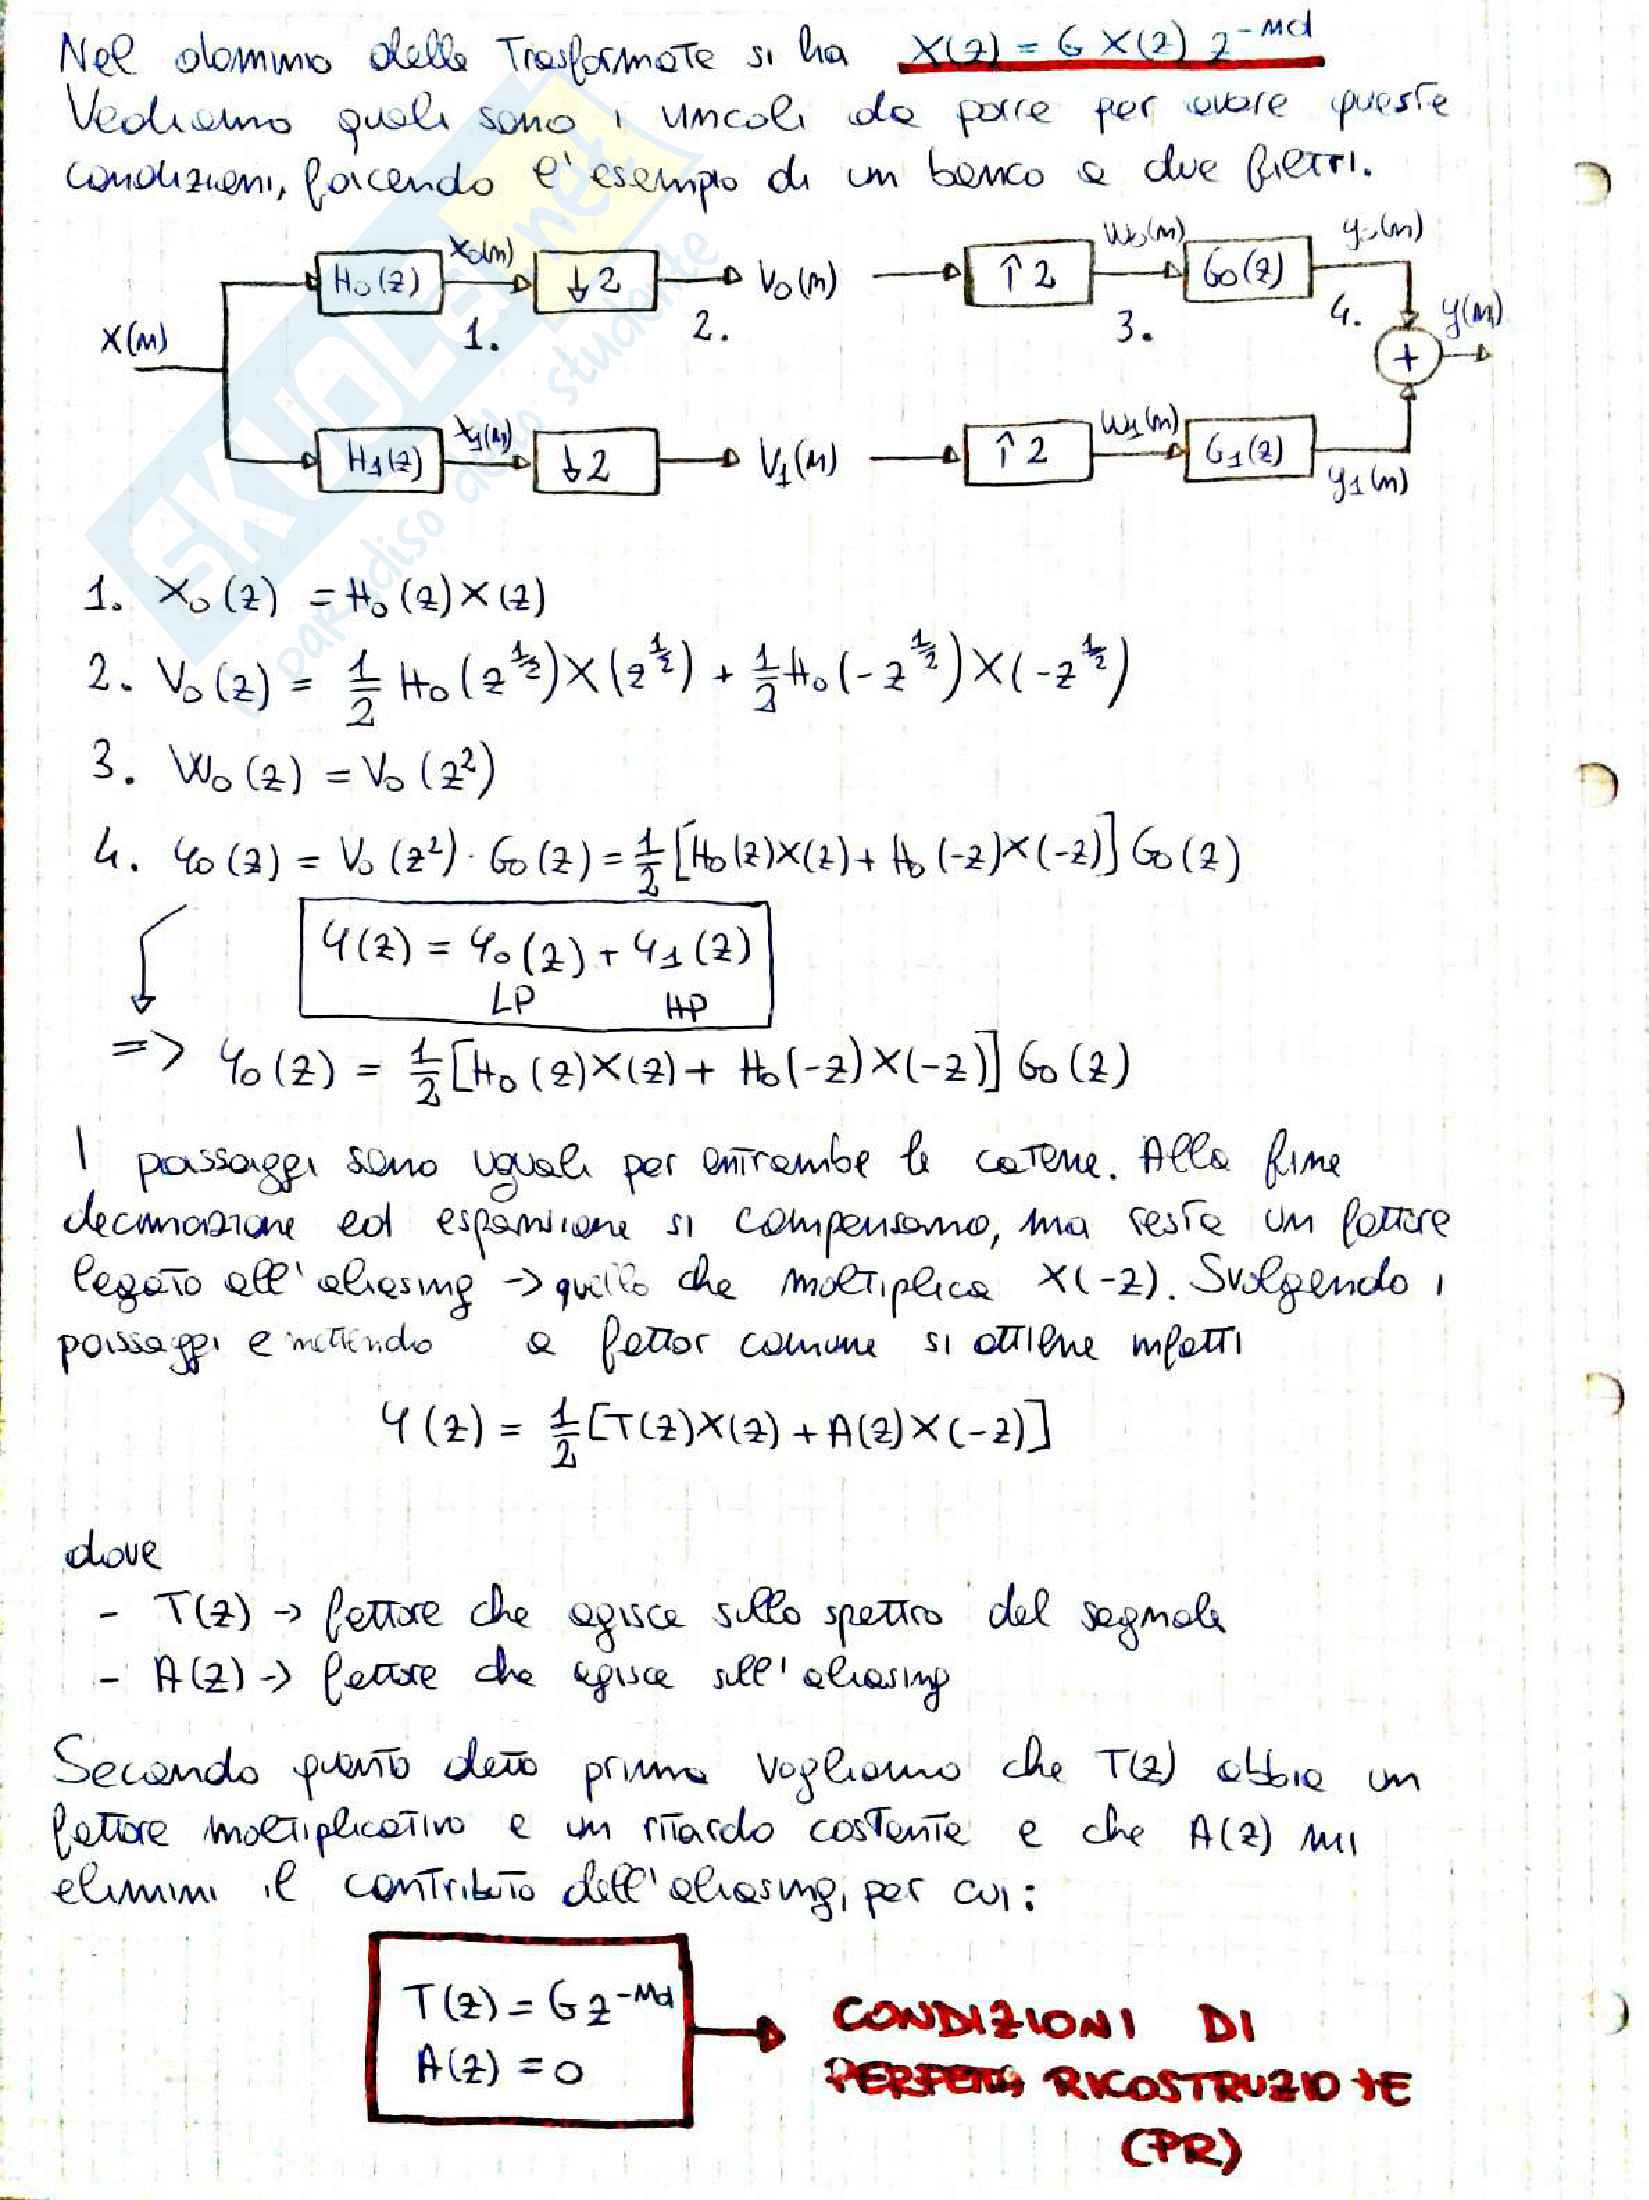 Nel dominio delle Trasformate si ha X(z) = G X(z) z^-nd
Vediamo quali sono i vincoli da porre per avere queste
condizioni, facendo l'esempio di un banco a due filtri.
x(n) H₀(z) x₀(n) ↓2 v₀(n) ↑2 w₀(n) G₀(z) y₀(n) y(n)
1. 2. 3. 4. +
H₁(z) x₁(n) ↓2 v₁(n) ↑2 w₁(n) G₁(z) y₁(n)
1. X₀(z) = H₀(z)X(z)
2. V₀(z) = 1/2 H₀(z^1/2)X(z^1/2) + 1/2 H₀(-z^1/2)X(-z^1/2)
3. W₀(z) = V₀(z²)
4. Y₀(z) = V₀(z²)·G₀(z) = 1/2 [H₀(z)X(z) + H₀(-z)X(-z)] G₀(z)
Y(z) = Y₀(z) + Y₁(z)
LP HP
=> Y₀(z) = 1/2 [H₀(z)X(z) + H₀(-z)X(-z)] G₀(z)
I passaggi sono uguali per entrambe le catene. Alla fine
decimazione ed espansione si compensano, ma resta un fattore
legato all'aliasing -> quello che moltiplica X(-z). Svolgendo i
passaggi e mettendo a fattor comune si ottiene infatti
Y(z) = 1/2 [T(z)X(z) + A(z)X(-z)]
dove
- T(z) -> fattore che agisce sullo spettro del segnale
- A(z) -> fattore che agisce sull'aliasing
Secondo quanto detto prima vogliamo che T(z) abbia un
fattore moltiplicativo e un ritardo costante e che A(z) mi
elimini il contributo dell'aliasing, per cui:
T(z) = G z^-nd
A(z) = 0
CONDIZIONI DI
PERFETTA RICOSTRUZIONE
(PR)
SKUOLA.net
paradiso dello studente